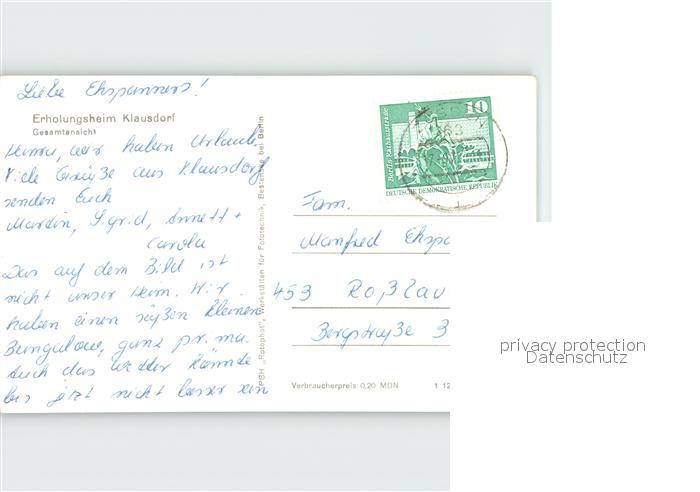 Liebe Ehspanners!
Erholungsheim Klausdorf
Gesamtansicht
Hurra, wir haben Urlaub.
Viele Grüße aus Klausdorf
senden Euch
Martin, Sigrid, Annett +
Carola
Das auf dem Bild ist
nicht unser Heim. Wir
haben einen süßen kleinen
Bungalow, ganz prima.
Auch das Wetter könnte
bis jetzt nicht besser sein
PGH „Rotophot", Werkstätten für Fototechnik, Bestensee bei Berlin
10
Berlin Rathausstraße
DEUTSCHE DEMOKRATISCHE REPUBLIK
Fam.
Manfred Ehspa
453 Roßlau
Bergstraße 3
Verbraucherpreis 0,20 MDN 1 12
privacy protection
Datenschutz